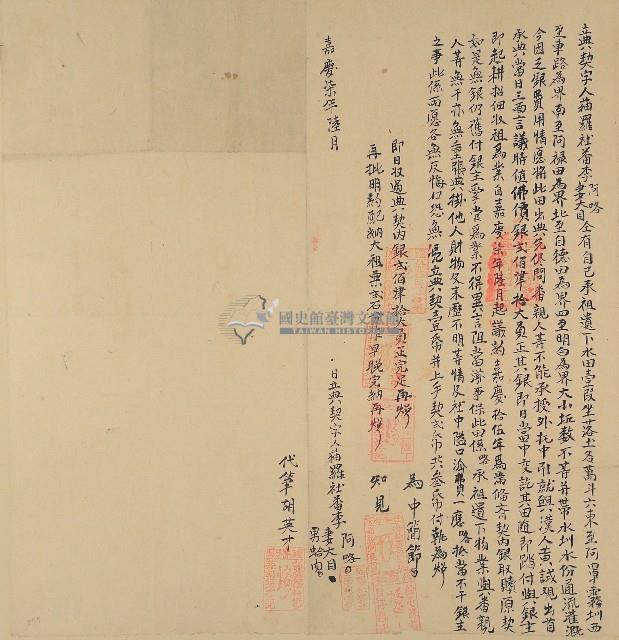 立典契字人猫羅社番李阿略妻大目仝有自己承祖遺下水田壹叚坐落土名萬斗六東至阿單霧圳西
至車路為界南至阿祿田為界北至白德田為界四至明白為界大小坵數不等并帶水圳水份通流灌溉
今因乏銀費用情愿將此田出典先侭問番親人等不能承授外托中引就與漢人黃誠觀出首
承典當日三面言議時值佛價銀弍佰肆拾大員正其銀即日當中交訖其田隨即踏付與銀主
即起耕招佃收租為業自嘉慶柒年陸月起議約嘉慶拾伍年為滿俻齊契內銀取贖原契
如是無銀仍舊付銀主掌管為業不得異言阻當滋事保此田係略承祖遺下物業與番親
人等無干亦無重張典掛他人財物交來歷不明等情及社中隘口滋費一應略抵當不干銀主
之事此係兩愿各無反悔口恐無憑立典契壹帋并上手契弍帋共叁帋付執為炤
即日收過典契內銀弍佰肆拾大員正完足再炤
再批明約配納大租粟弍石 早晚完納再炤
為中簡節
知見
嘉慶柒年陸月 日立典契字人猫羅社番李阿略
妻大目
男蛤肉
代筆胡英才
國史館臺灣文獻館
TAIWAN HISTORICA